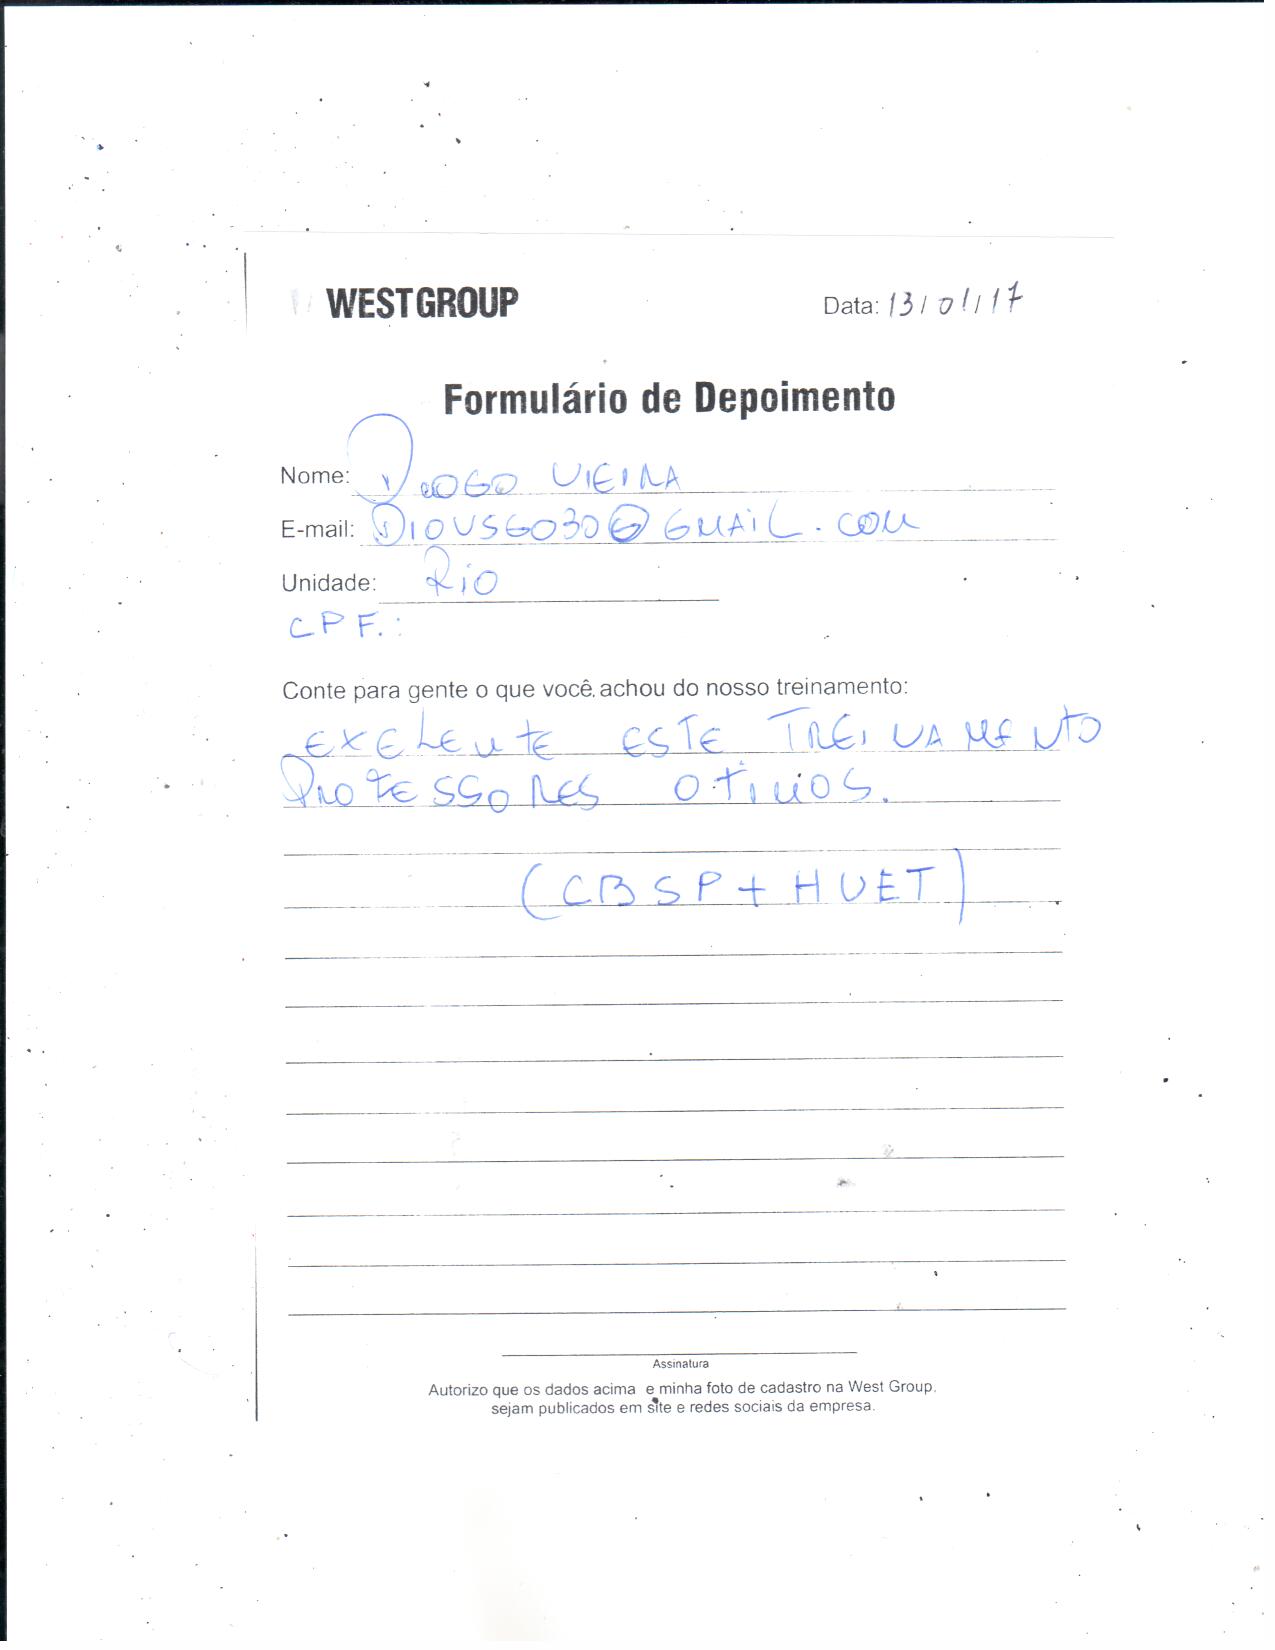 WEST GROUP
Data: 13/01/17
Formulário de Depoimento
Nome: DIOGO VIEIRA
E-mail: DIOVSGO30@GMAIL.COM
Unidade: RIO
CPF.:
Conte para gente o que você achou do nosso treinamento:
EXELENTE ESTE TREINAMENTO
PROFESSORES OTIMOS.
(CBSP + HUET)
Assinatura
Autorizo que os dados acima e minha foto de cadastro na West Group,
sejam publicados em site e redes sociais da empresa.